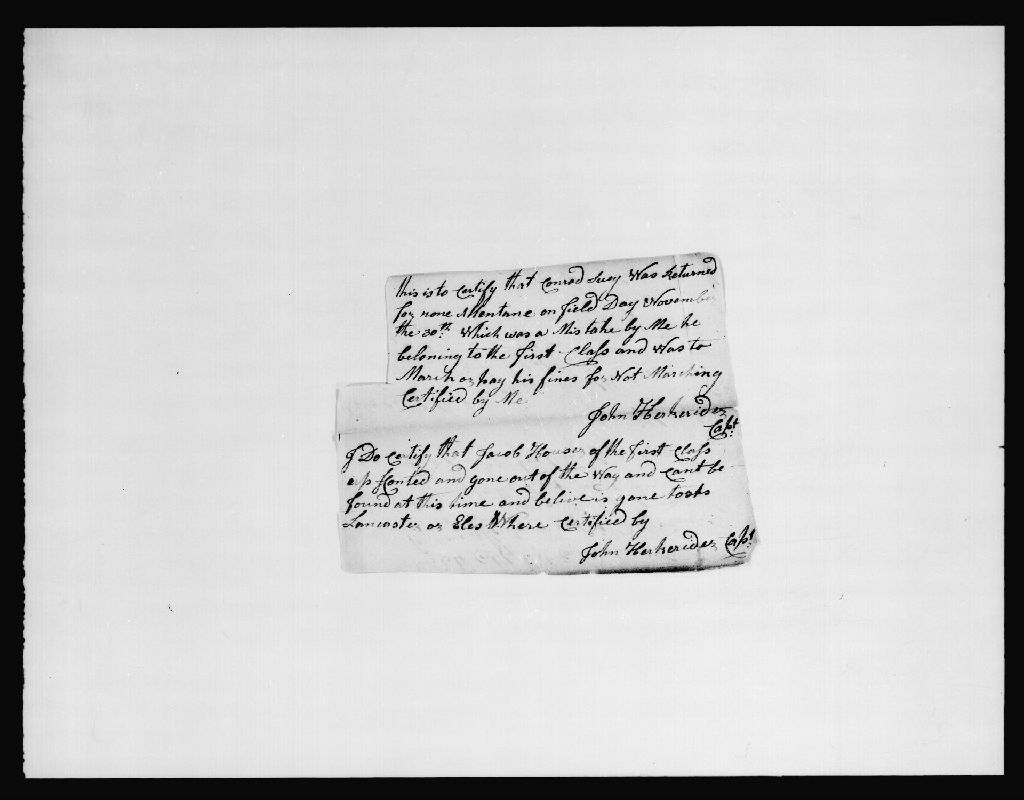 this is to Certify that Conrad Suey Was Returned
for none Attentane on field Day November
the 30th. Which was a Mistake by Me he
beloning to the first Class and Was to
March or pay his fines for Not Marching
Certified by Me
John Herkerider
Capt
I Do Certify that Jacob Houser of the first Class
absconted and gone out of the Way and Cant be
found at this time and belive is gone to
Lancaster or Eles Where Certified by
John Herkerider Capt